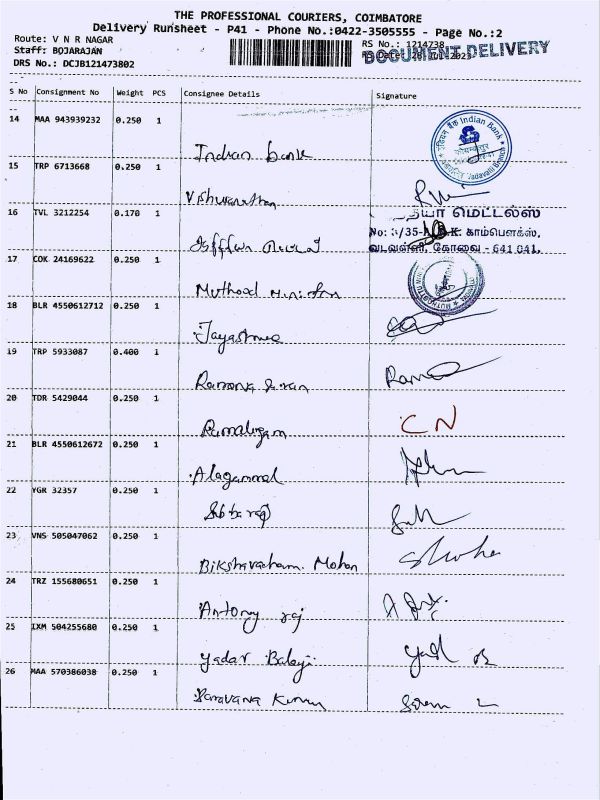 THE PROFESSIONAL COURIERS, COIMBATORE
Delivery Runsheet - P41 - Phone No.:0422-3505555 - Page No.:2
Route: V N R NAGAR
Staff: BOJARAJAN
DRS No.: DCJB121473802
RS No.: 1214738
DOCUMENT DELIVERY
S No Consignment No Weight PCS Consignee Details Signature
14 MAA 943939232 0.250 1
Indian bank
Indian Bank
15 TRP 6713668 0.250 1
Vishwanathan
16 TVL 3212254 0.170 1
மெட்டல்ஸ்
காம்பௌக்ஸ்,
வடவள்ளி, கோவை - 641 041.
17 COK 24169622 0.250 1
Muthoot
18 BLR 4550612712 0.250 1
Jayashree
19 TRP 5933087 0.400 1
Ramana
20 TDR 5429044 0.250 1
Ramalingam CN
21 BLR 4550612672 0.250 1
Alagammal
22 YGR 32357 0.250 1
23 VNS 505047062 0.250 1
Mohan
24 TRZ 155680651 0.250 1
Antony raj
25 IXM 504255680 0.250 1
Yadav Balaji
26 MAA 570386038 0.250 1
Saravana Kumar